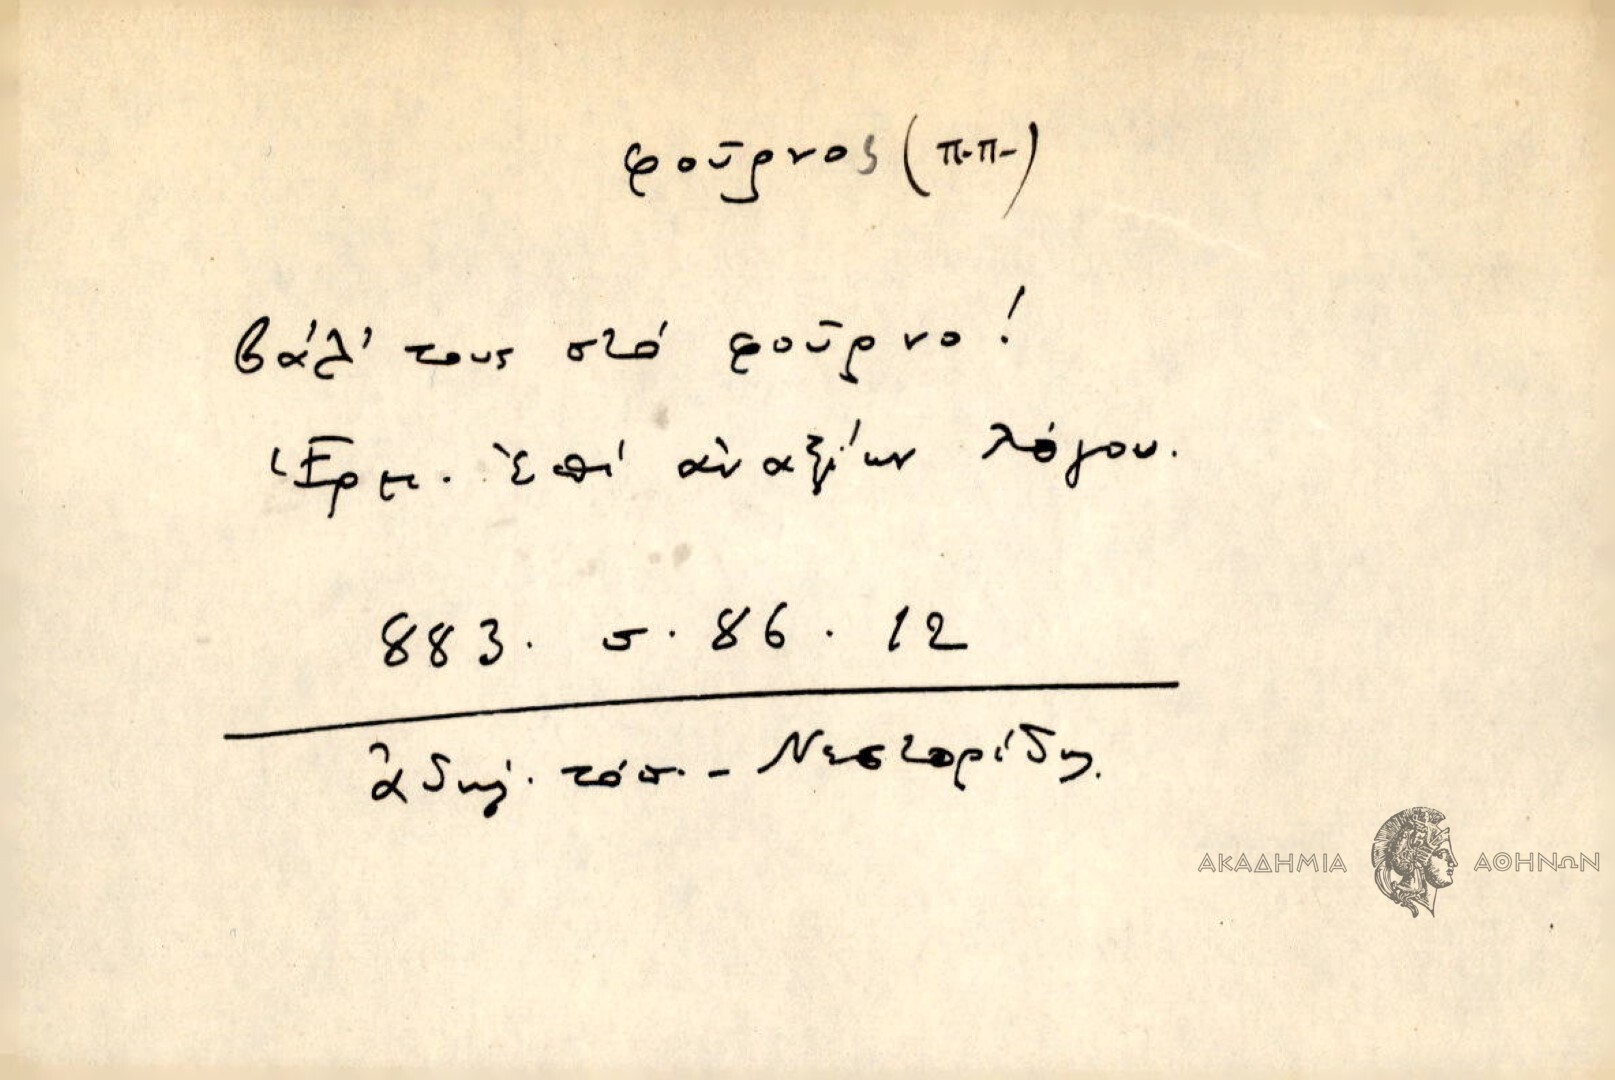 φοῦρνος (π.π.)
βάλ' τους στό φοῦρνο!
Ἑρμ. ἐπί ἀναξίων λόγου.
883. σ. 86. 12
ἀδήλ. τόπ. - Νεστορίδης.
ΑΚΑΔΗΜΙΑ ΑΘΗΝΩΝ